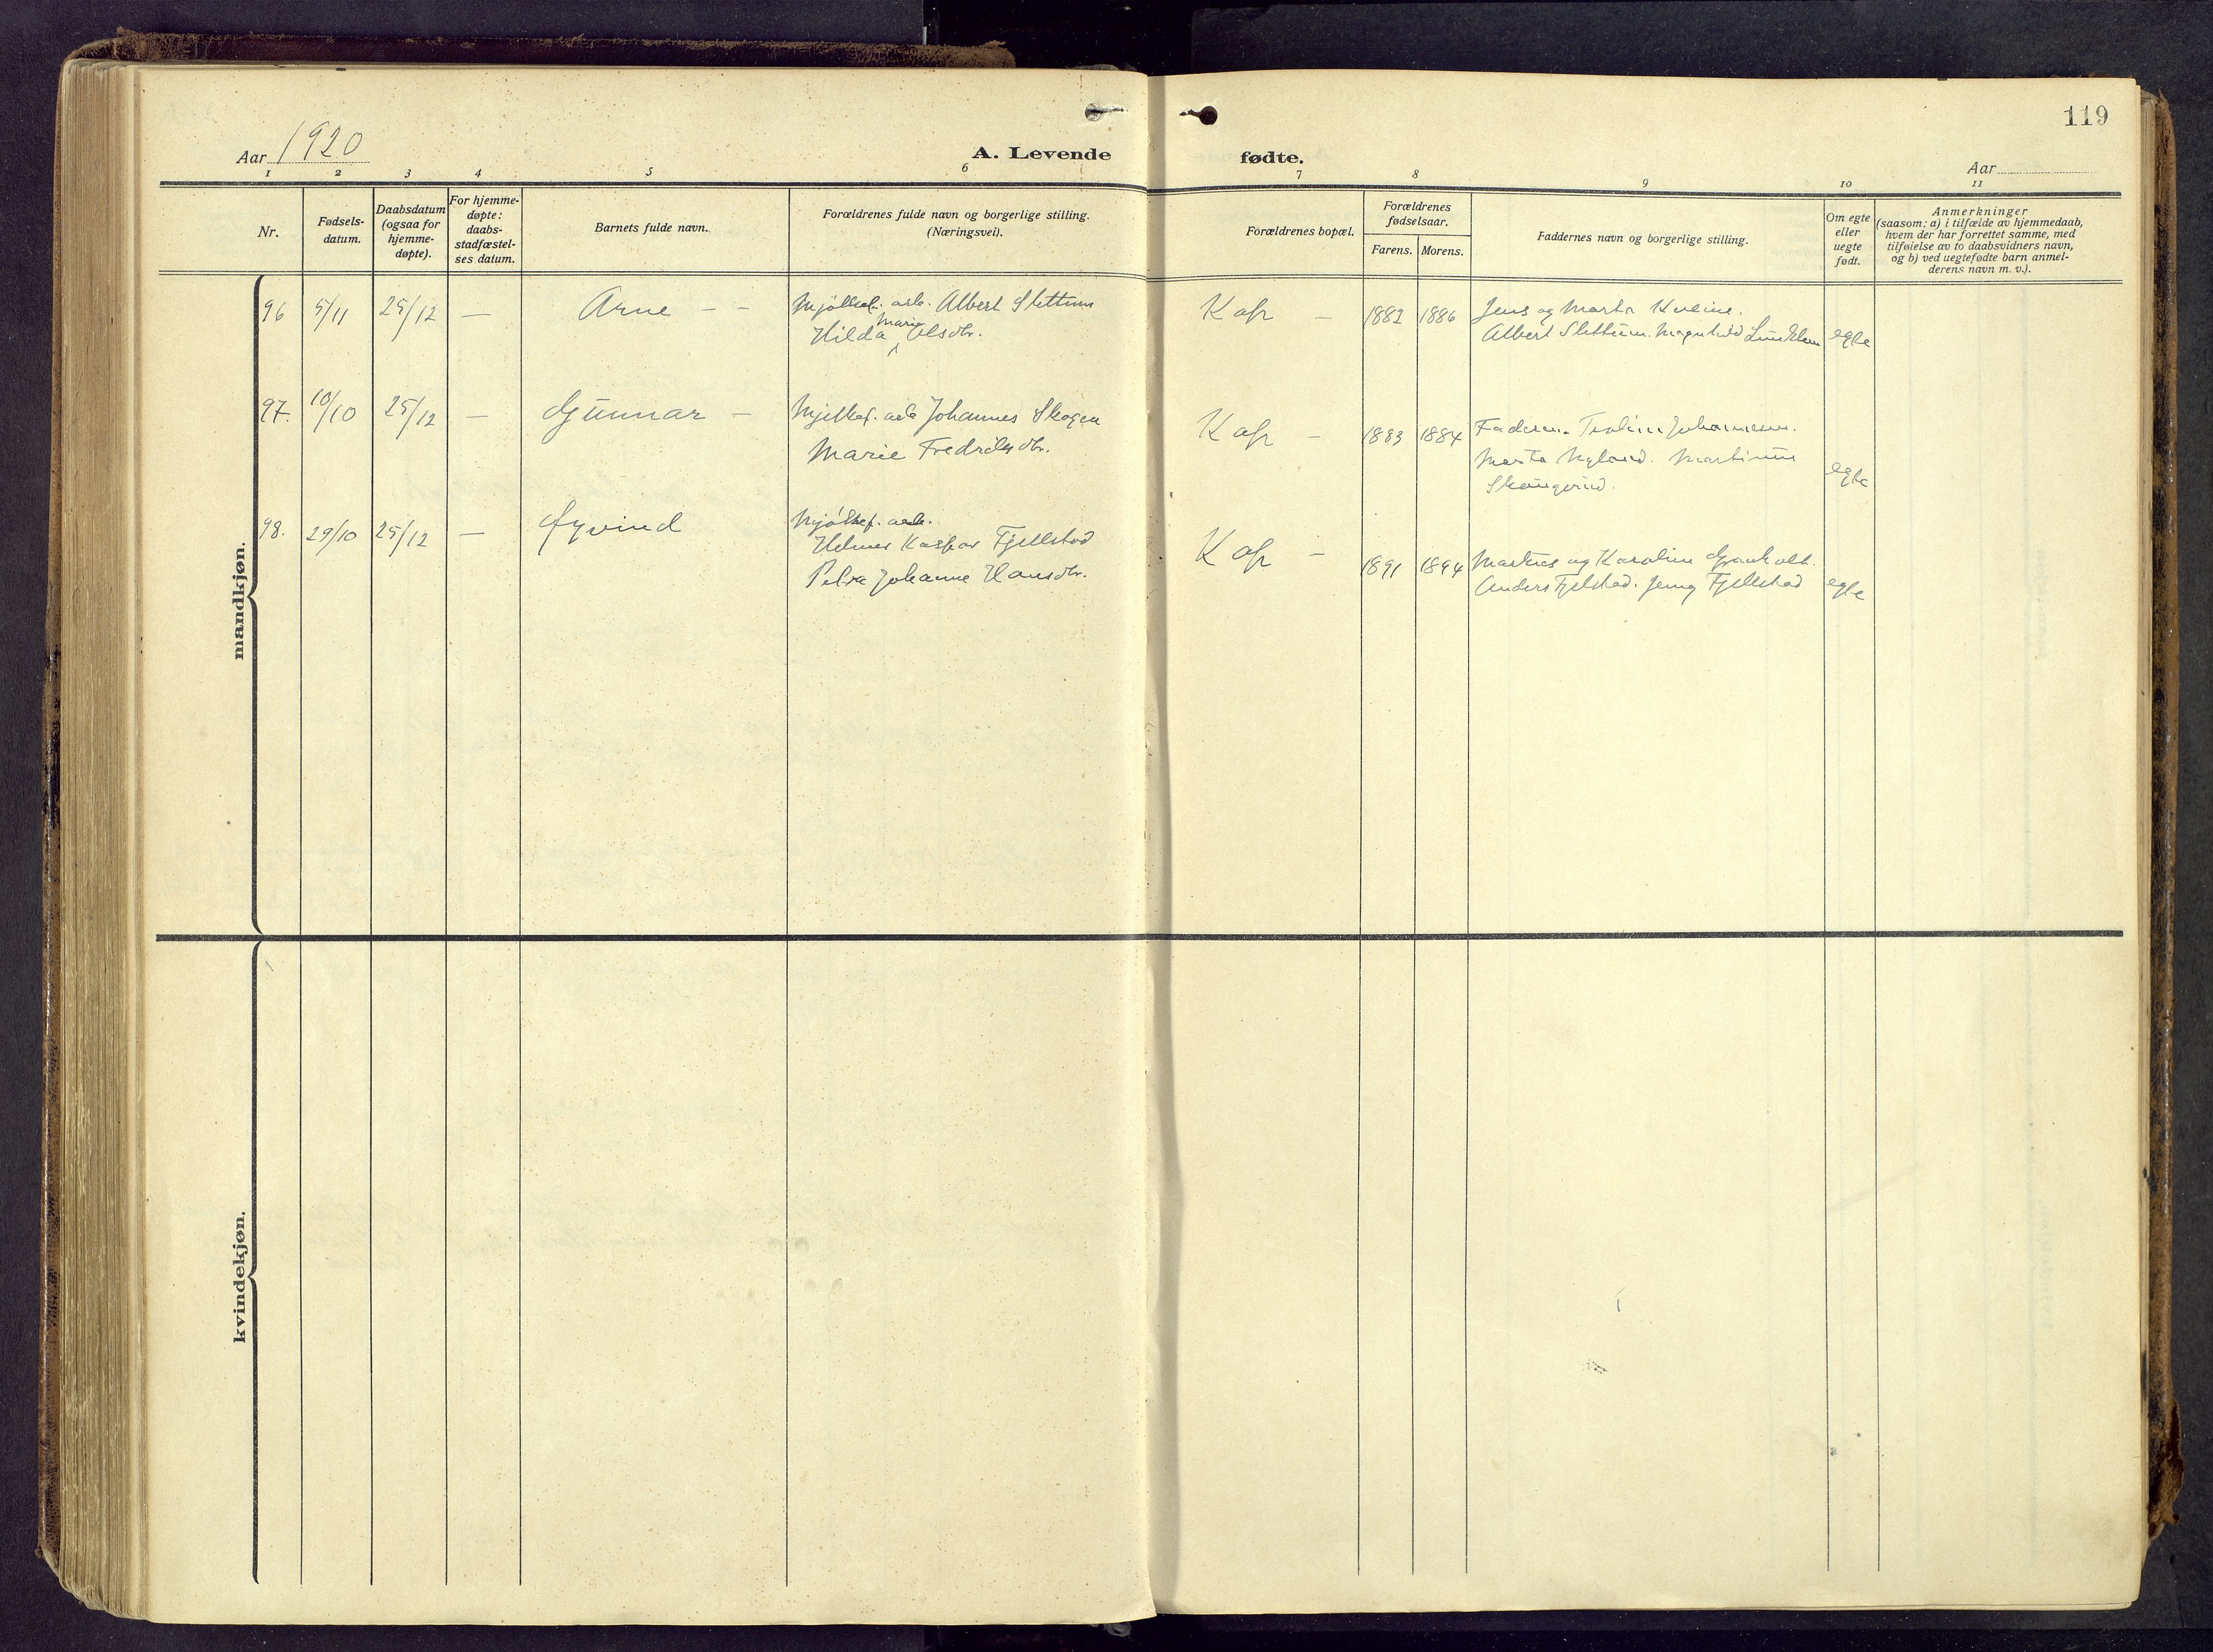 119
Aar 1920
A. Levende fødte.
Aar
1 2 3 4 5 6 7 8 9 10 11
Nr.
Fødsels-
datum.
Daabsdatum
(ogsaa for
hjemme-
døpte).
For hjemme-
døpte:
daabs-
stadfæstel-
ses datum.
Barnets fulde navn.
Forældrenes fulde navn og borgerlige stilling.
(Næringsvei).
Forældrenes bopæl.
Forældrenes
fødselsaar.
Farens. Morens.
Faddernes navn og borgerlige stilling.
Om egte
eller
uegte
født.
Anmerkninger
(saasom: a) i tilfælde av hjemmedaab,
hvem der har forrettet samme, med
tilføielse av to daabsvidners navn,
og b) ved uegtefødte barn anmel-
derens navn m. v.).
mandkjøn.
96 5/11 25/12 — Arne — — Mjølkef. arb. Albert Slettum
Hilda Marie Olsdtr.
Kap — 1882 1886 Jens og Marta Kleine.
Albert Slettum. Magnhild egte
97. 10/10 25/12 — Gunnar — Mjelkef. arb. Johannes Skogen
Marie Fredriksdtr.
Kap — 1883 1884 Faderen. Johannesen.
Marta Nyland. Martinus
egte
98. 29/10 25/12 — Øyvind Mjølkef. arb.
Helmer Kaspar Fjellstad
Petra Johanne Hansdtr.
Kap — 1891 1894 Martius og Karoline Granholt.
Anders Fjelstad. Jenny Fjellstad egte
kvindekjøn.